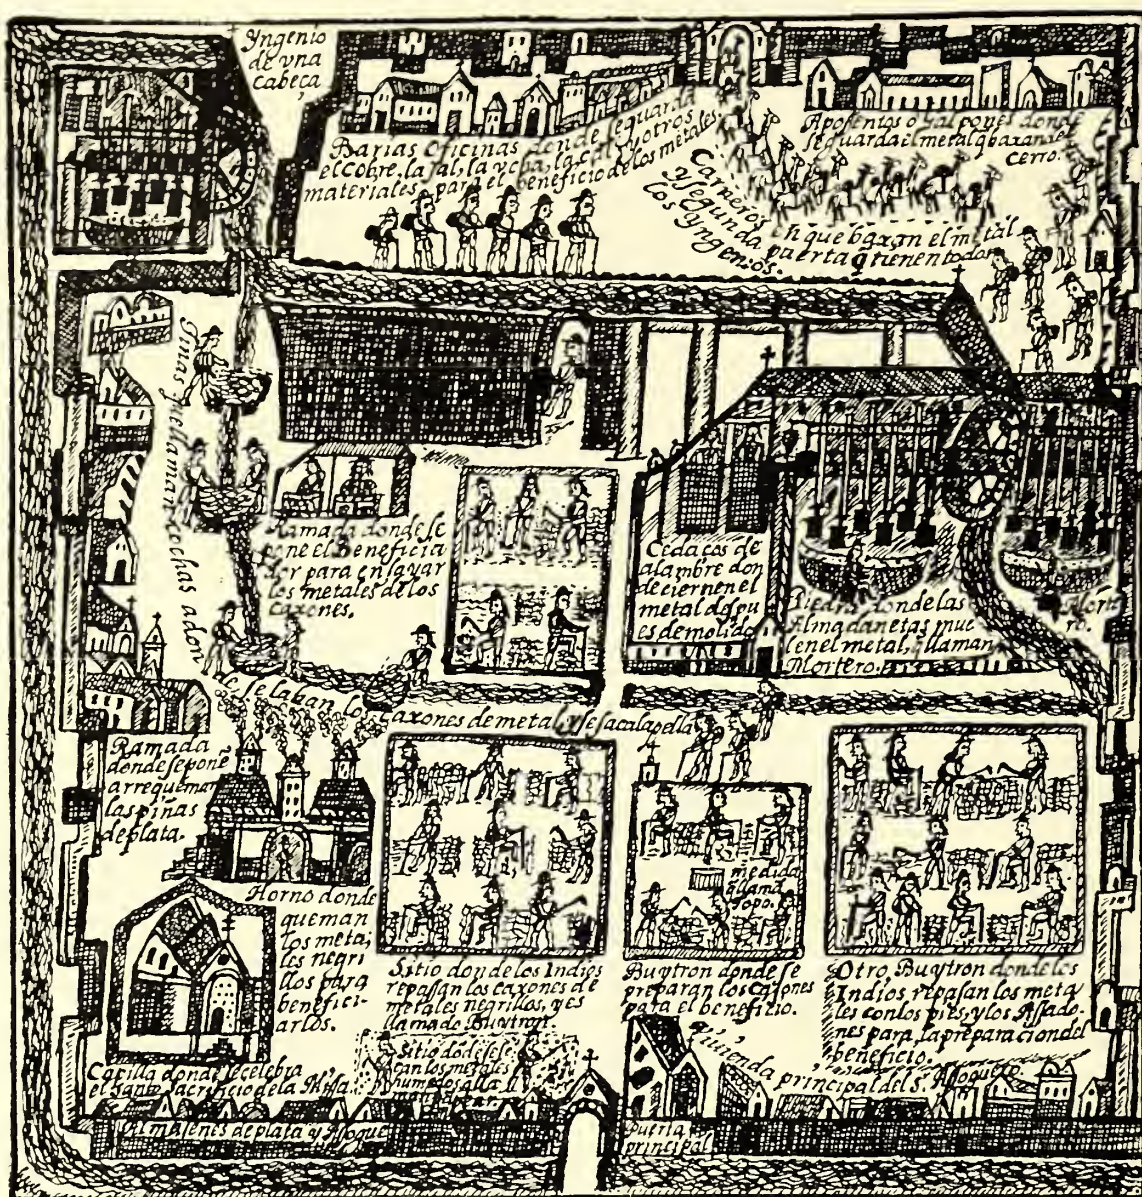 Yngenio
de vna
cabeça
Barias Oficinas donde se guarda
el cobre, la sal, la ycha, la cal, y otros
materiales, para el beneficio de los metales
Aposentos o galpones donde
se guarda el metal q̃ baxan del
cerro.
Carneros
n que baxan el metal
y segunda puerta q̃ tienen todos
los Yngenios.
Tinas que llaman Cochas adon
de se laban los caxones de metal, y se saca la pella
Ramada donde se
pone el Beneficia
dor para enlavar
los metales de los
caxones.
Cedaços de
alambre don
de ciernen el
metal despu
es de molido
Piedra donde las
Almadanetas mue
len el metal, q̃ llaman
Mortero.
Morte
ro.
Ramada
donde se poñe
a rrequemar
las piñas
de plata.
Horno donde
queman
los meta,
les negri
llos para
benefici-
arlos.
medida
llama
Topo.
Sitio donde los Indios
repasan los caxones de
metales negrillos, y es
llamado Buytron.
Buytron donde se
preparan los Cajones
para el beneficio.
Otro Buytron donde los
Indios, repasan los meta
les con los pies, y los Assado
nes para la preparacion del
beneficio.
Capilla donde se celebra
el Santo sacrificio de la Missa.
Sitio dõde se se
can los metales
humedos alla
man
Vivienda principal del S. Assoguero
Almasenes de plata y Asogue
Puerta
principal